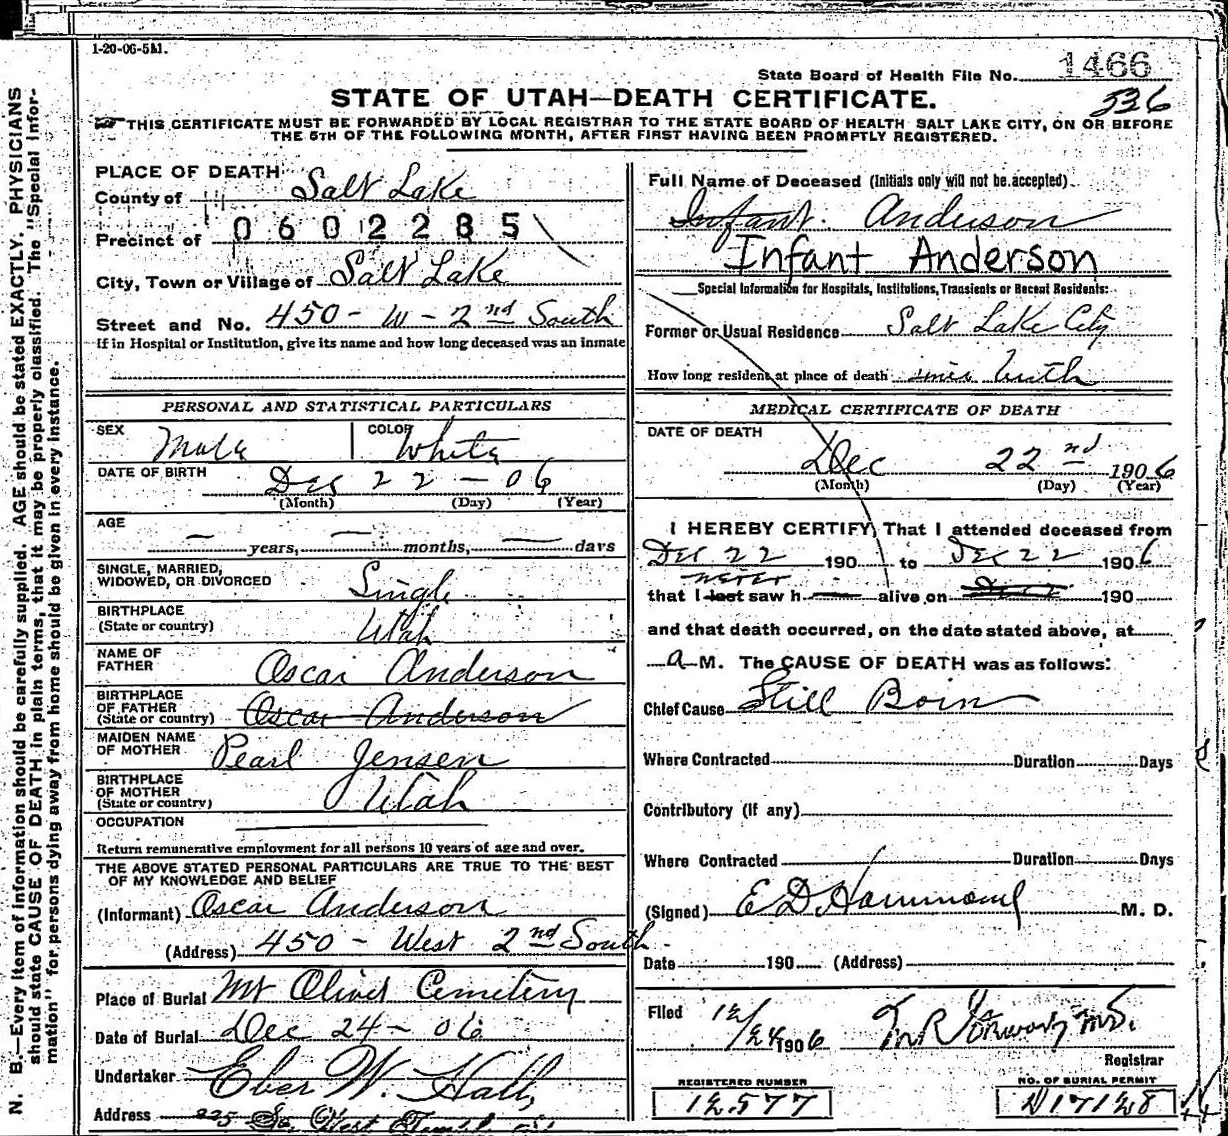 1-20-06-5M.
State Board of Health File No. 1466
STATE OF UTAH—DEATH CERTIFICATE.
536
THIS CERTIFICATE MUST BE FORWARDED BY LOCAL REGISTRAR TO THE STATE BOARD OF HEALTH SALT LAKE CITY, ON OR BEFORE
THE 5TH OF THE FOLLOWING MONTH, AFTER FIRST HAVING BEEN PROMPTLY REGISTERED.
N. B.—Every item of information should be carefully supplied. AGE should be stated EXACTLY. PHYSICIANS
should state CAUSE OF DEATH in plain terms, that it may be properly classified. The "Special Infor-
mation" for persons dying away from home should be given in every instance.
PLACE OF DEATH
County of Salt Lake
Precinct of 0602285
City, Town or Village of Salt Lake
Street and No. 450 - W - 2nd South
If in Hospital or Institution, give its name and how long deceased was an inmate
PERSONAL AND STATISTICAL PARTICULARS
SEX Male COLOR White
DATE OF BIRTH Dec 22 - 06
(Month) (Day) (Year)
AGE
— years, — months, — days
SINGLE, MARRIED,
WIDOWED, OR DIVORCED Single
BIRTHPLACE
(State or country) Utah
NAME OF
FATHER Oscar Anderson
BIRTHPLACE
OF FATHER
(State or country) Oscar Anderson
MAIDEN NAME
OF MOTHER Pearl Jensen
BIRTHPLACE
OF MOTHER
(State or country) Utah
OCCUPATION
Return remunerative employment for all persons 10 years of age and over.
THE ABOVE STATED PERSONAL PARTICULARS ARE TRUE TO THE BEST
OF MY KNOWLEDGE AND BELIEF
(Informant) Oscar Anderson
(Address) 450 - West 2nd South
Place of Burial Mt Olivet Cemetery
Date of Burial Dec 24 - 06
Undertaker Eber W. Hall
Address 225 So. West Temple
Full Name of Deceased (Initials only will not be accepted)
Infant. Anderson
Infant Anderson
Special Information for Hospitals, Institutions, Transients or Recent Residents:
Former or Usual Residence Salt Lake City
How long resident at place of death since birth
MEDICAL CERTIFICATE OF DEATH
DATE OF DEATH
Dec 22nd 1906
(Month) (Day) (Year)
I HEREBY CERTIFY, That I attended deceased from
Dec 22 190 to Dec 22 1906
never
that I last saw h — alive on Dec 2 190
and that death occurred, on the date stated above, at
a M. The CAUSE OF DEATH was as follows:
Chief Cause Still Born
Where Contracted Duration Days
Contributory (if any)
Where Contracted Duration Days
(Signed) E D Hammond M. D.
Date 190 (Address)
Filed 12/24 1906
Registrar
REGISTERED NUMBER
12577
NO. OF BURIAL PERMIT